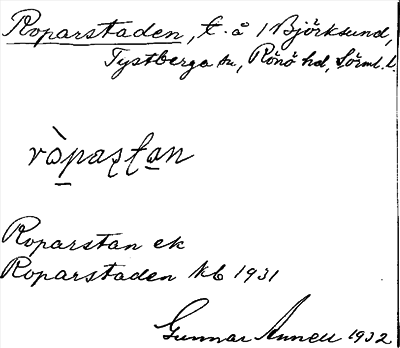 Roparstaden, t. å 1 Björksund,
Tystberga sn, Rönö hd, Sörml. l.
rò̱paʂʈa̱n
Roparstan ek
Roparstaden kb 1931
Gunnar 1932